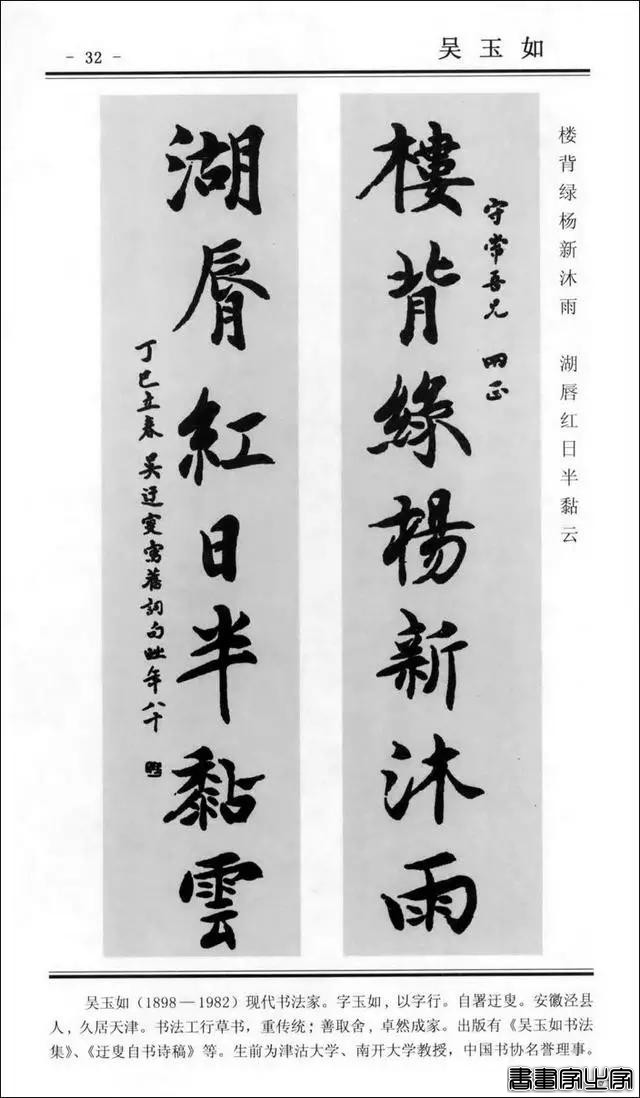 - 32 -
吴玉如
楼背绿杨新沐雨 湖唇红日半黏云
樓背綠楊新沐雨
守常吾兄 两正
湖脣紅日半黏雲
丁巳立春 吴迂叟寫舊詞句 时年八十
吴玉如(1898—1982)现代书法家。字玉如,以字行。自署迂叟。安徽泾县
人,久居天津。书法工行草书,重传统;善取舍,卓然成家。出版有《吴玉如书法
集》、《迂叟自书诗稿》等。生前为津沽大学、南开大学教授,中国书协名誉理事。
書畫家之字